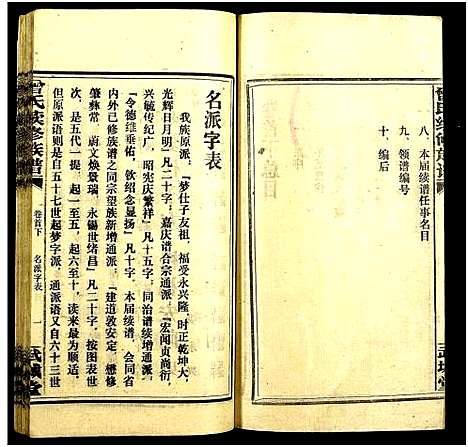 曾氏续修族谱
八、本届续谱任事名目
九、领谱编号
十、编后
武城堂
名派字表
我族原派，『梦仕子友祖，福受永兴隆，时正乾坤大，
光辉日月明』凡二十字；嘉庆谱合宗通派，『宏闻贞尚衍，
兴毓传纪广，昭宪庆繁祥』凡十五字；同治谱续增通派，
『令德维垂佑，钦绍念显扬』凡十字，本届续谱，会同省
内外己修族谱之同宗望族新增通派，『建道敦安定，懋修
肇彝常，蔚文焕景瑞，永锡世绪昌』凡二十字，按图表世
次，五起一至五，一起六至十，读来最为顺适，
但原派语则是自五十七世起梦字派，通派语又自六十三世
曾氏续修族谱
卷首下
名派字表
一
武城堂